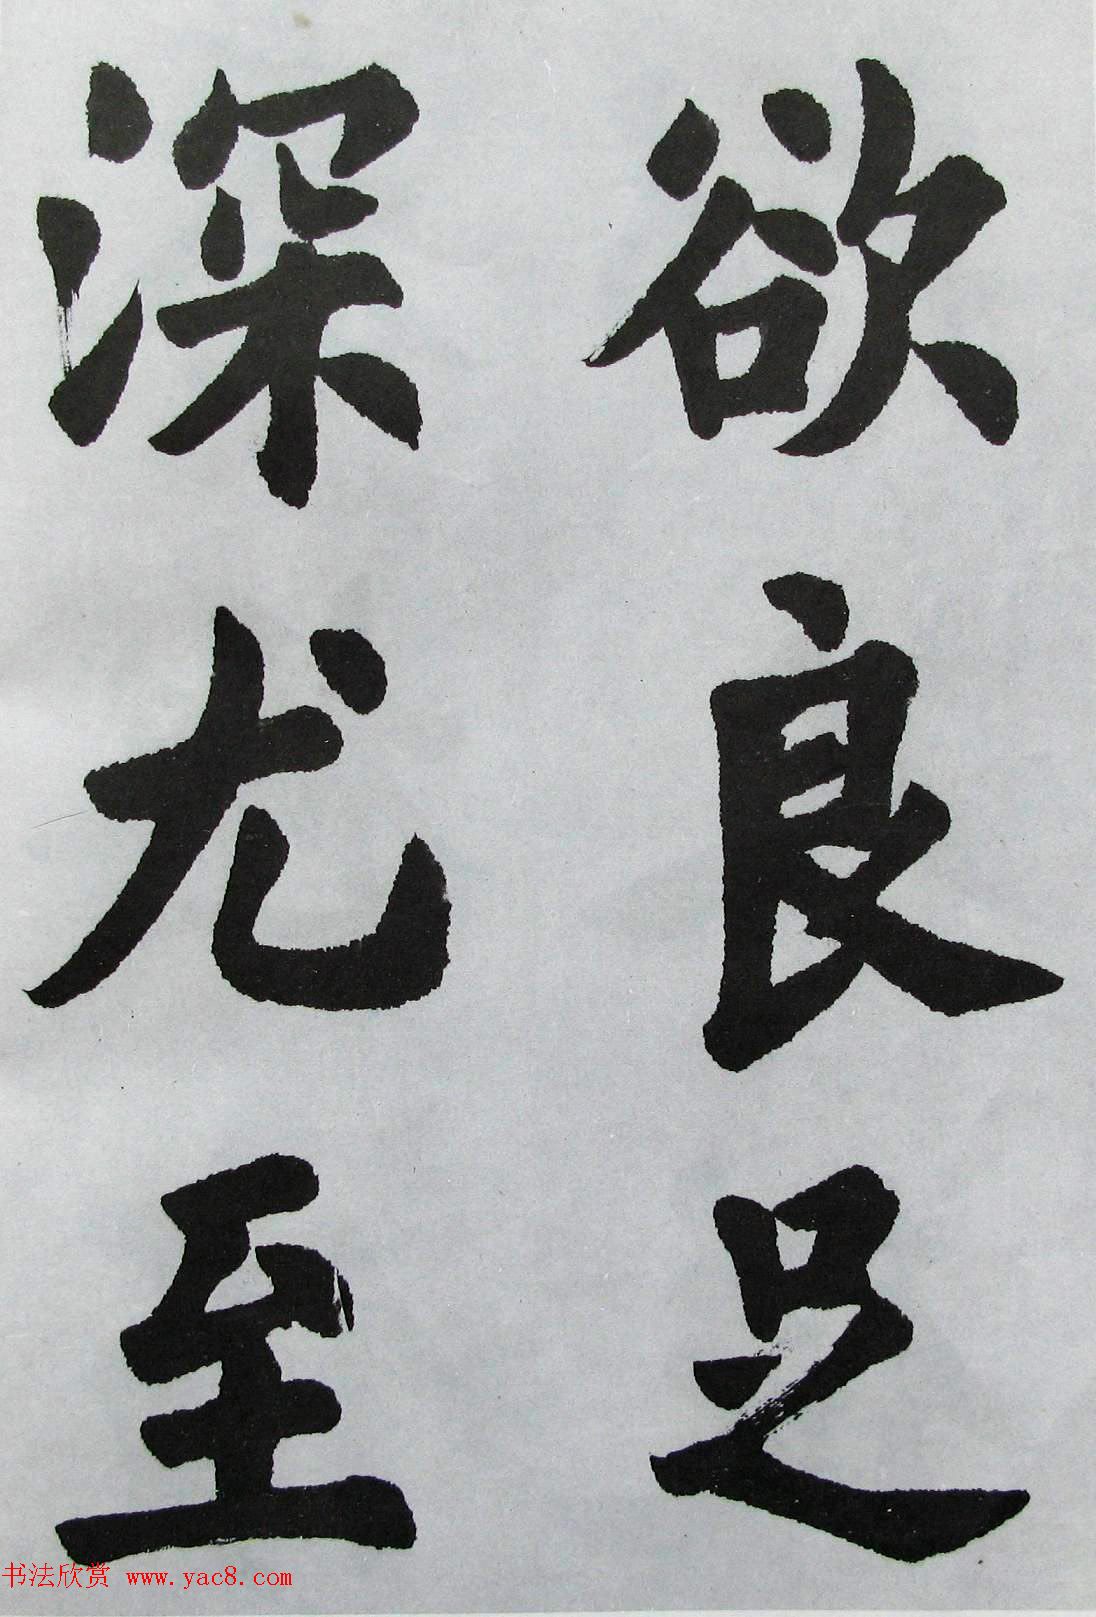 欲良足
深尤至
书法欣赏 www.yac8.com